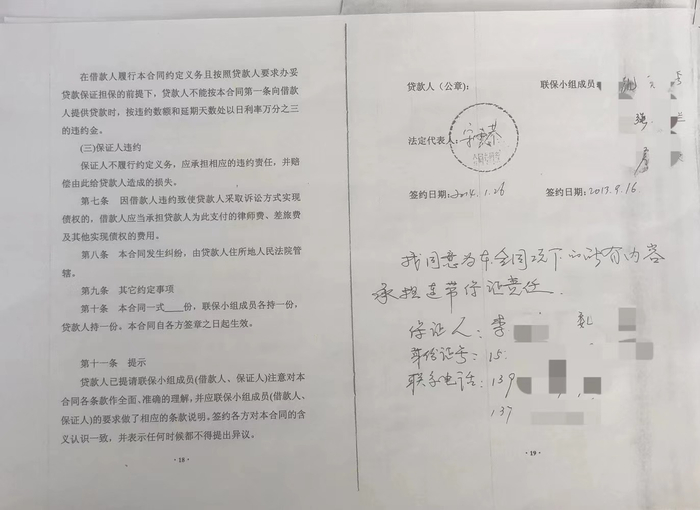 在借款人履行本合同约定义务且按照贷款人要求办妥
贷款保证担保的前提下，贷款人不能按本合同第一条向借款
人提供贷款时，按违约数额和延期天数处以日利率万分之三
的违约金。
(三)保证人违约
保证人不履行约定义务，应承担相应的违约责任，并赔
偿由此给贷款人造成的损失。
第七条 因借款人违约致使贷款人采取诉讼方式实现
债权的，借款人应当承担贷款人为此支付的律师费、差旅费
及其他实现债权的费用。
第八条 本合同发生纠纷，由贷款人住所地人民法院管
辖。
第九条 其它约定事项
第十条 本合同一式____份，联保小组成员各持一份，
贷款人持一份。本合同自各方签章之日起生效。
第十一条 提示
贷款人已提请联保小组成员(借款人、保证人)注意对本
合同各条款作全面、准确的理解，并应联保小组成员(借款人、
保证人)的要求做了相应的条款说明。签约各方对本合同的含
义认识一致，并表示任何时候都不得提出异议。
·18·
贷款人（公章）： 联保小组成员
法定代表人：
签约日期：2014.1.26 签约日期：2013.9.16
我同意为本合同项下的所有内容
承担连带保证责任.
保证人：李
身份证号：15
联系电话：139
137
·19·